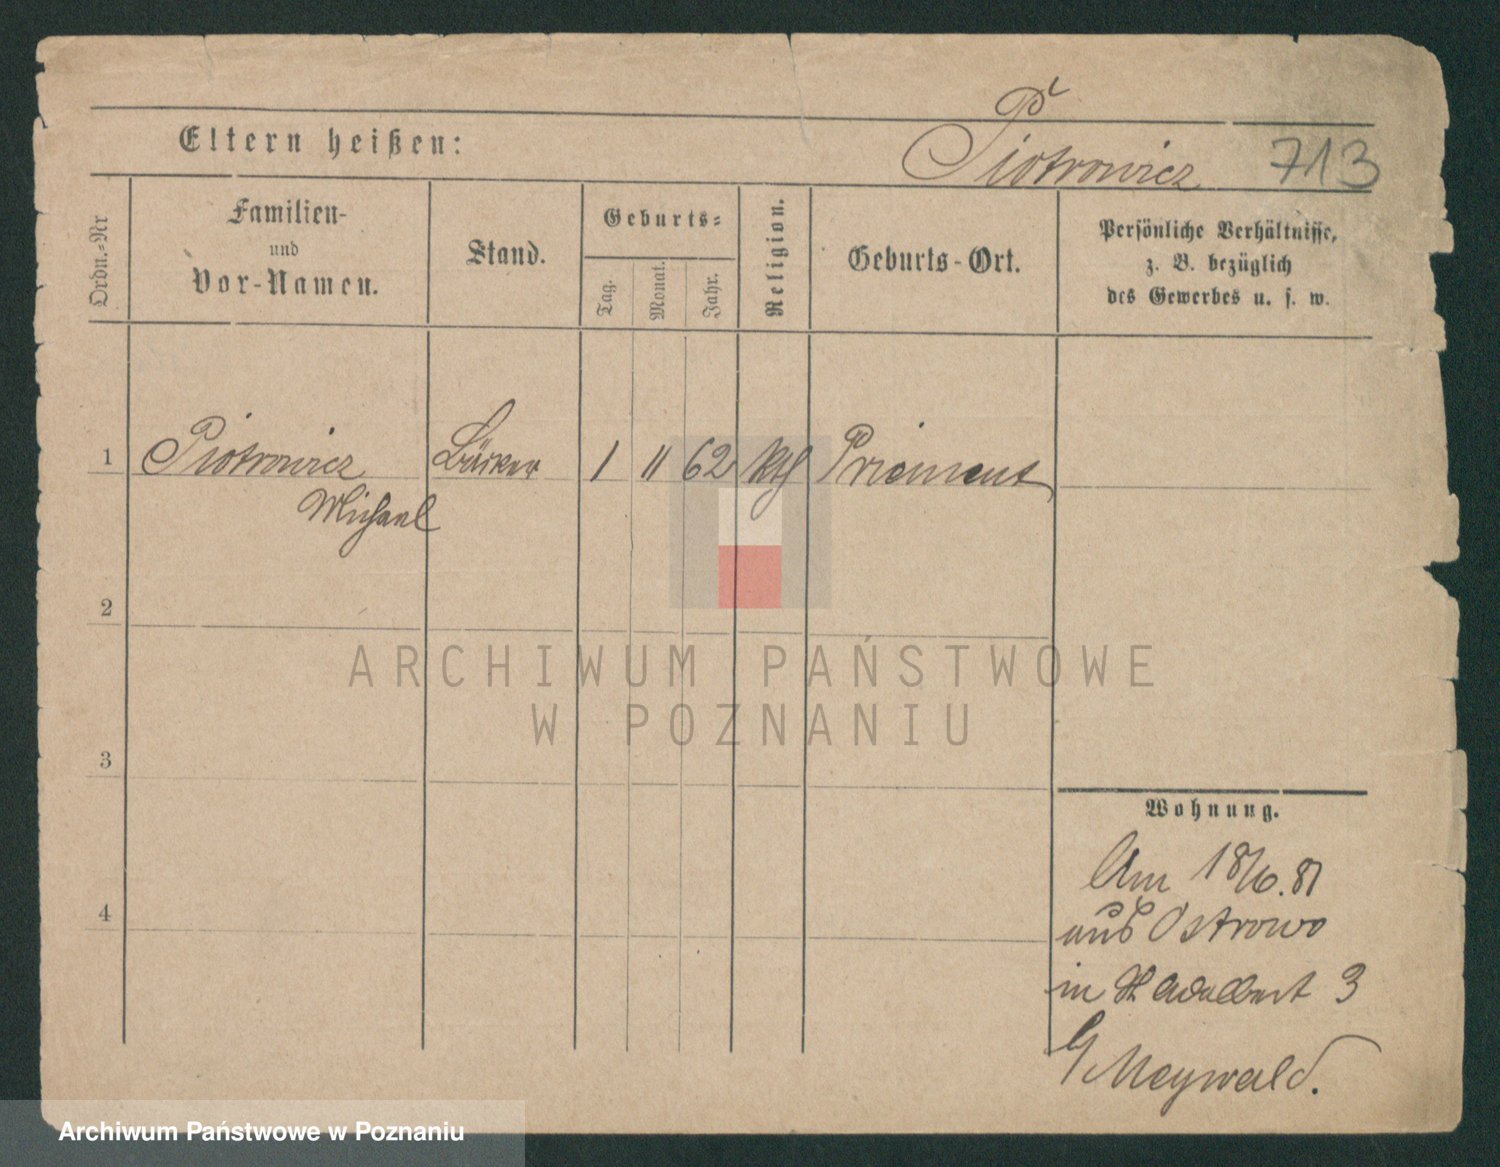 Eltern heißen:
Piotrowicz
713
Ordn.-Nr
Familien-
und
Vor-Namen.
Stand.
Geburts-
Tag.
Monat.
Jahr.
Religion.
Geburts-Ort.
Persönliche Verhältnisse,
z. B. bezüglich
des Gewerbes u. s. w.
1 Piotrowicz 1 11 62 kth Priement
Michael
2
3
4
Wohnung.
Am 18/6. 81
aus Ostrowo
in St Adalbert 3
G/ Meywald.
ARCHIWUM PAŃSTWOWE
W POZNANIU
Archiwum Państwowe w Poznaniu